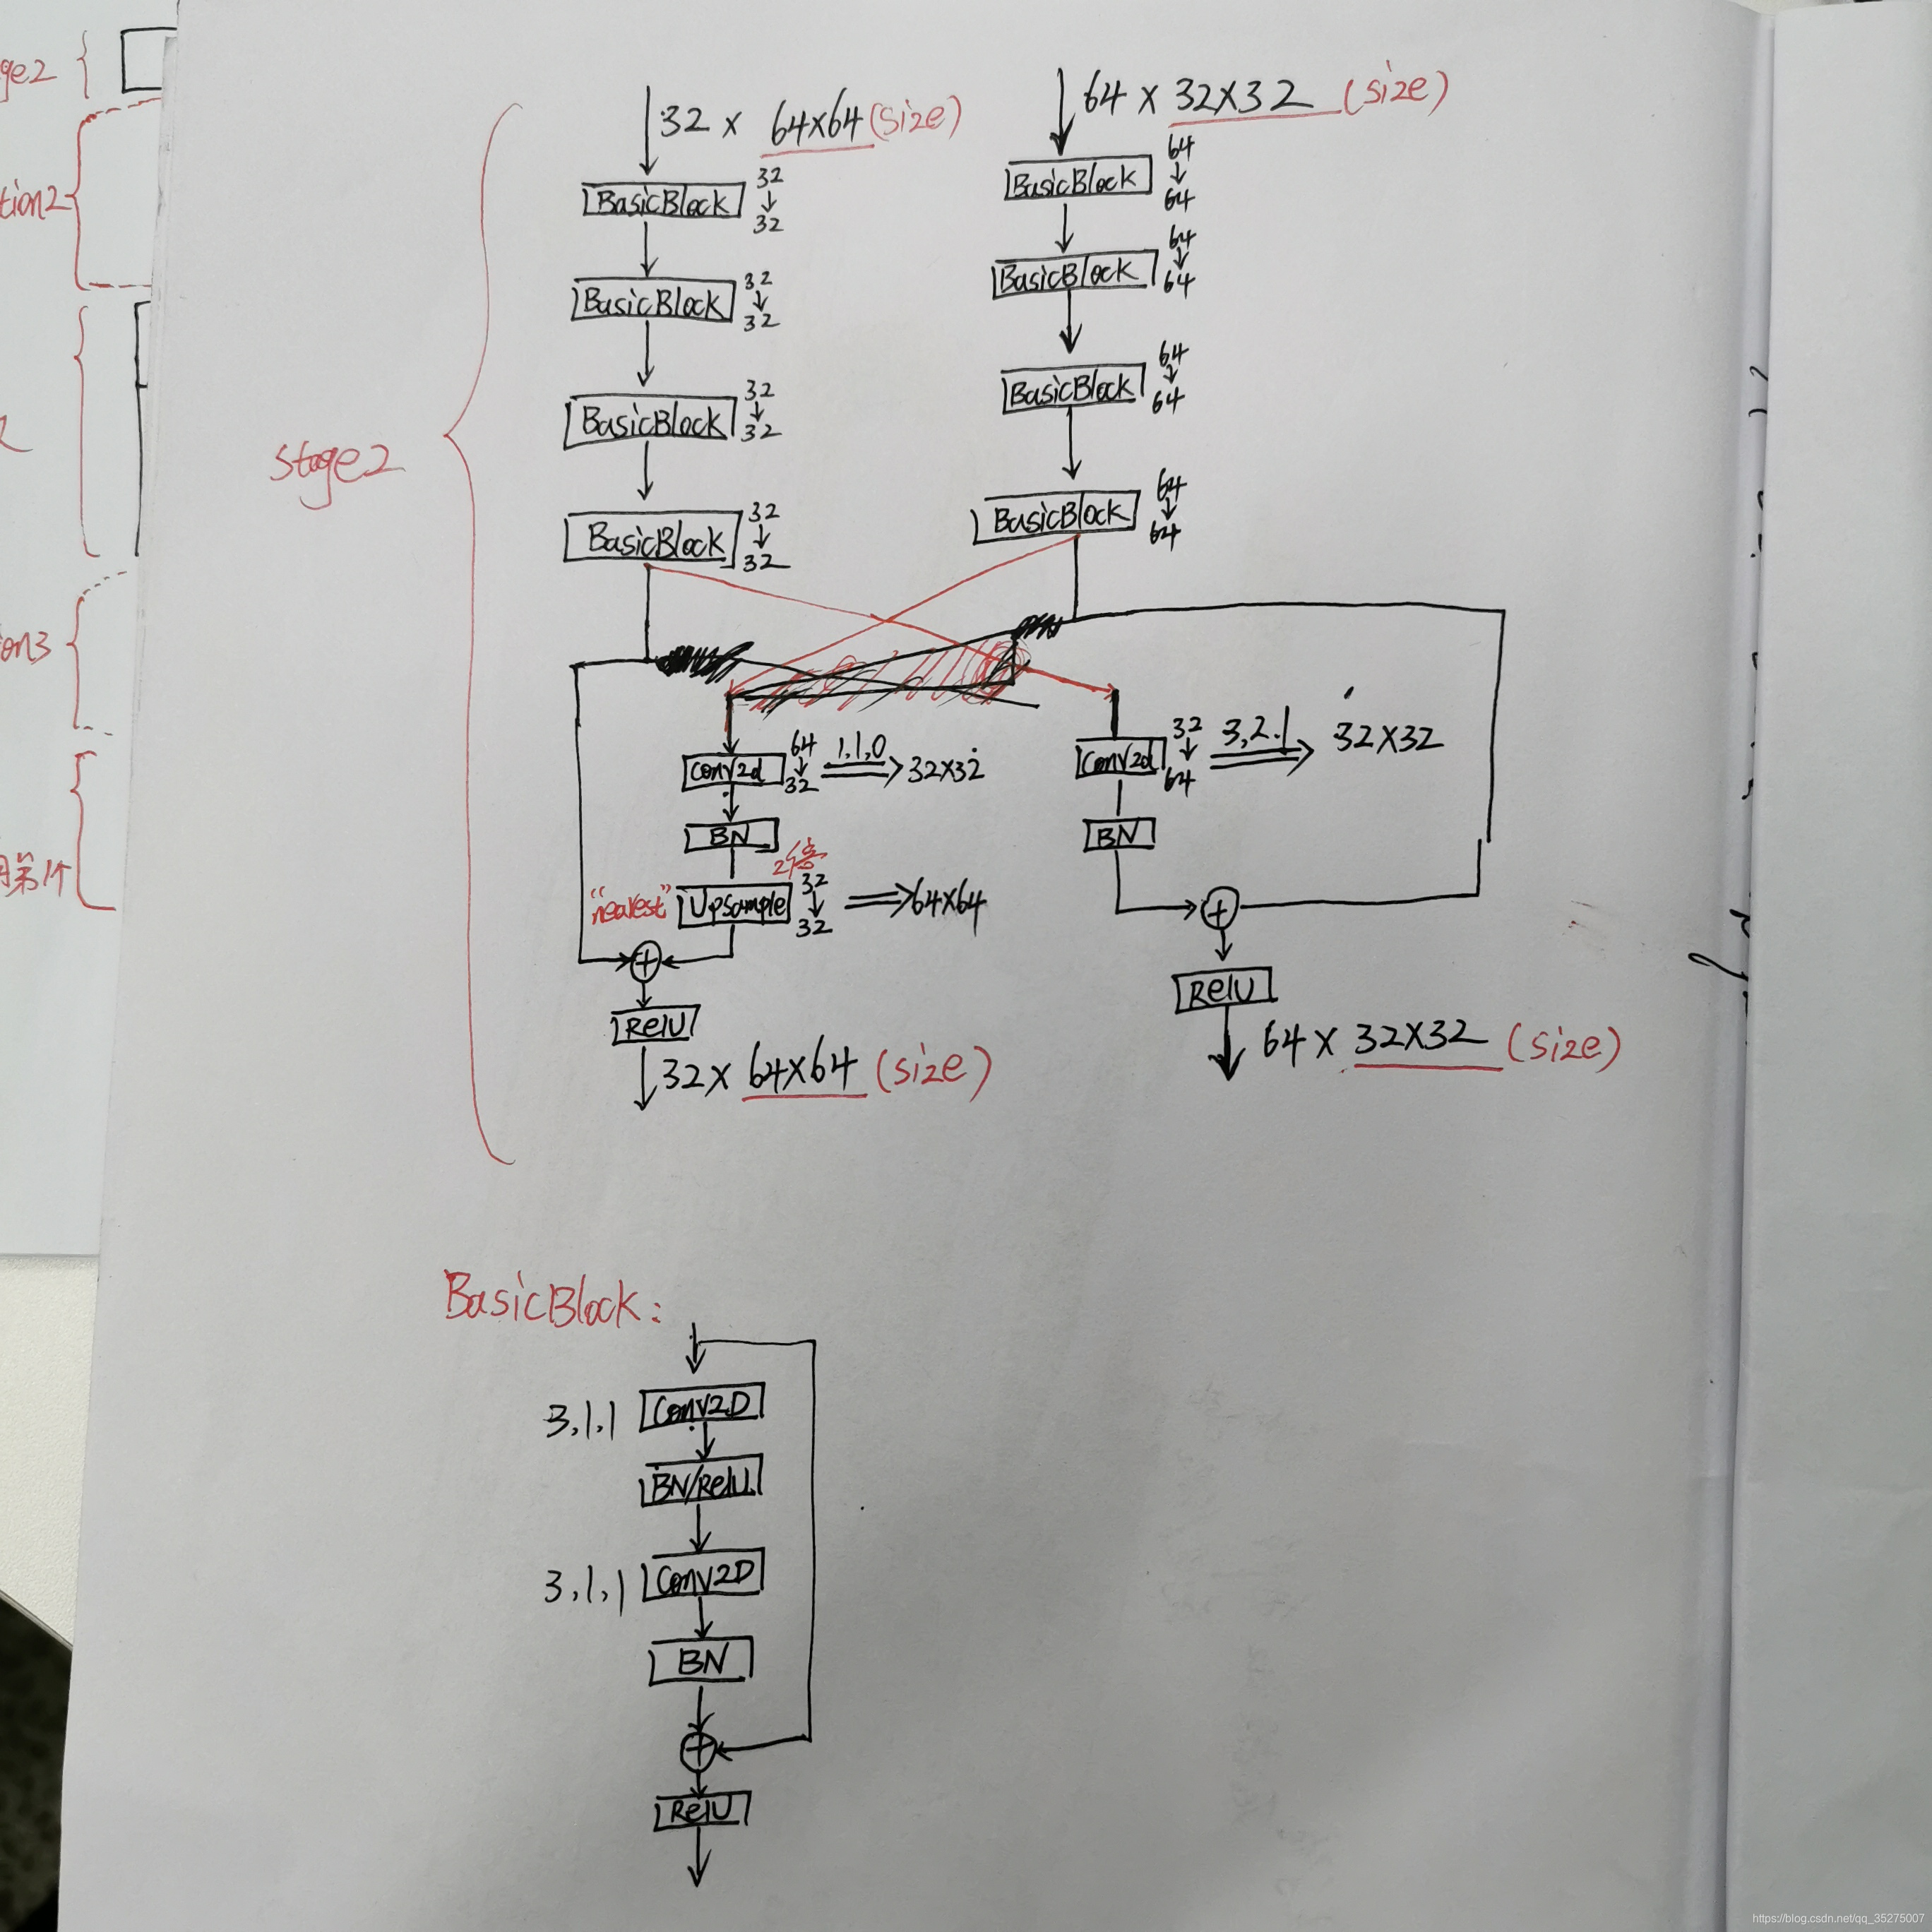 ge2
tion2
on3
第1个
stage2
32 x 64x64 (size)
BasicBlock 32 ↓ 32
BasicBlock 32 ↓ 32
BasicBlock 32 ↓ 32
BasicBlock 32 ↓ 32
64 x 32x32 (size)
BasicBlock 64 ↓ 64
BasicBlock 64 ↓ 64
BasicBlock 64 ↓ 64
BasicBlock 64 ↓ 64
Conv2d 64 ↓ 32 1,1,0 ⇒ 32x32
BN
2倍
"nearest" Upsample 32 ↓ 32 ⇒ 64x64
+
Relu
32 x 64x64 (size)
Conv2d 32 ↓ 64 3,2.1 ⇒ 32x32
BN
+
Relu
64 x 32x32 (size)
BasicBlock:
3,1,1 Conv2D
BN/Relu
3,1,1 Conv2D
BN
+
Relu
https://blog.csdn.net/qq_35275007